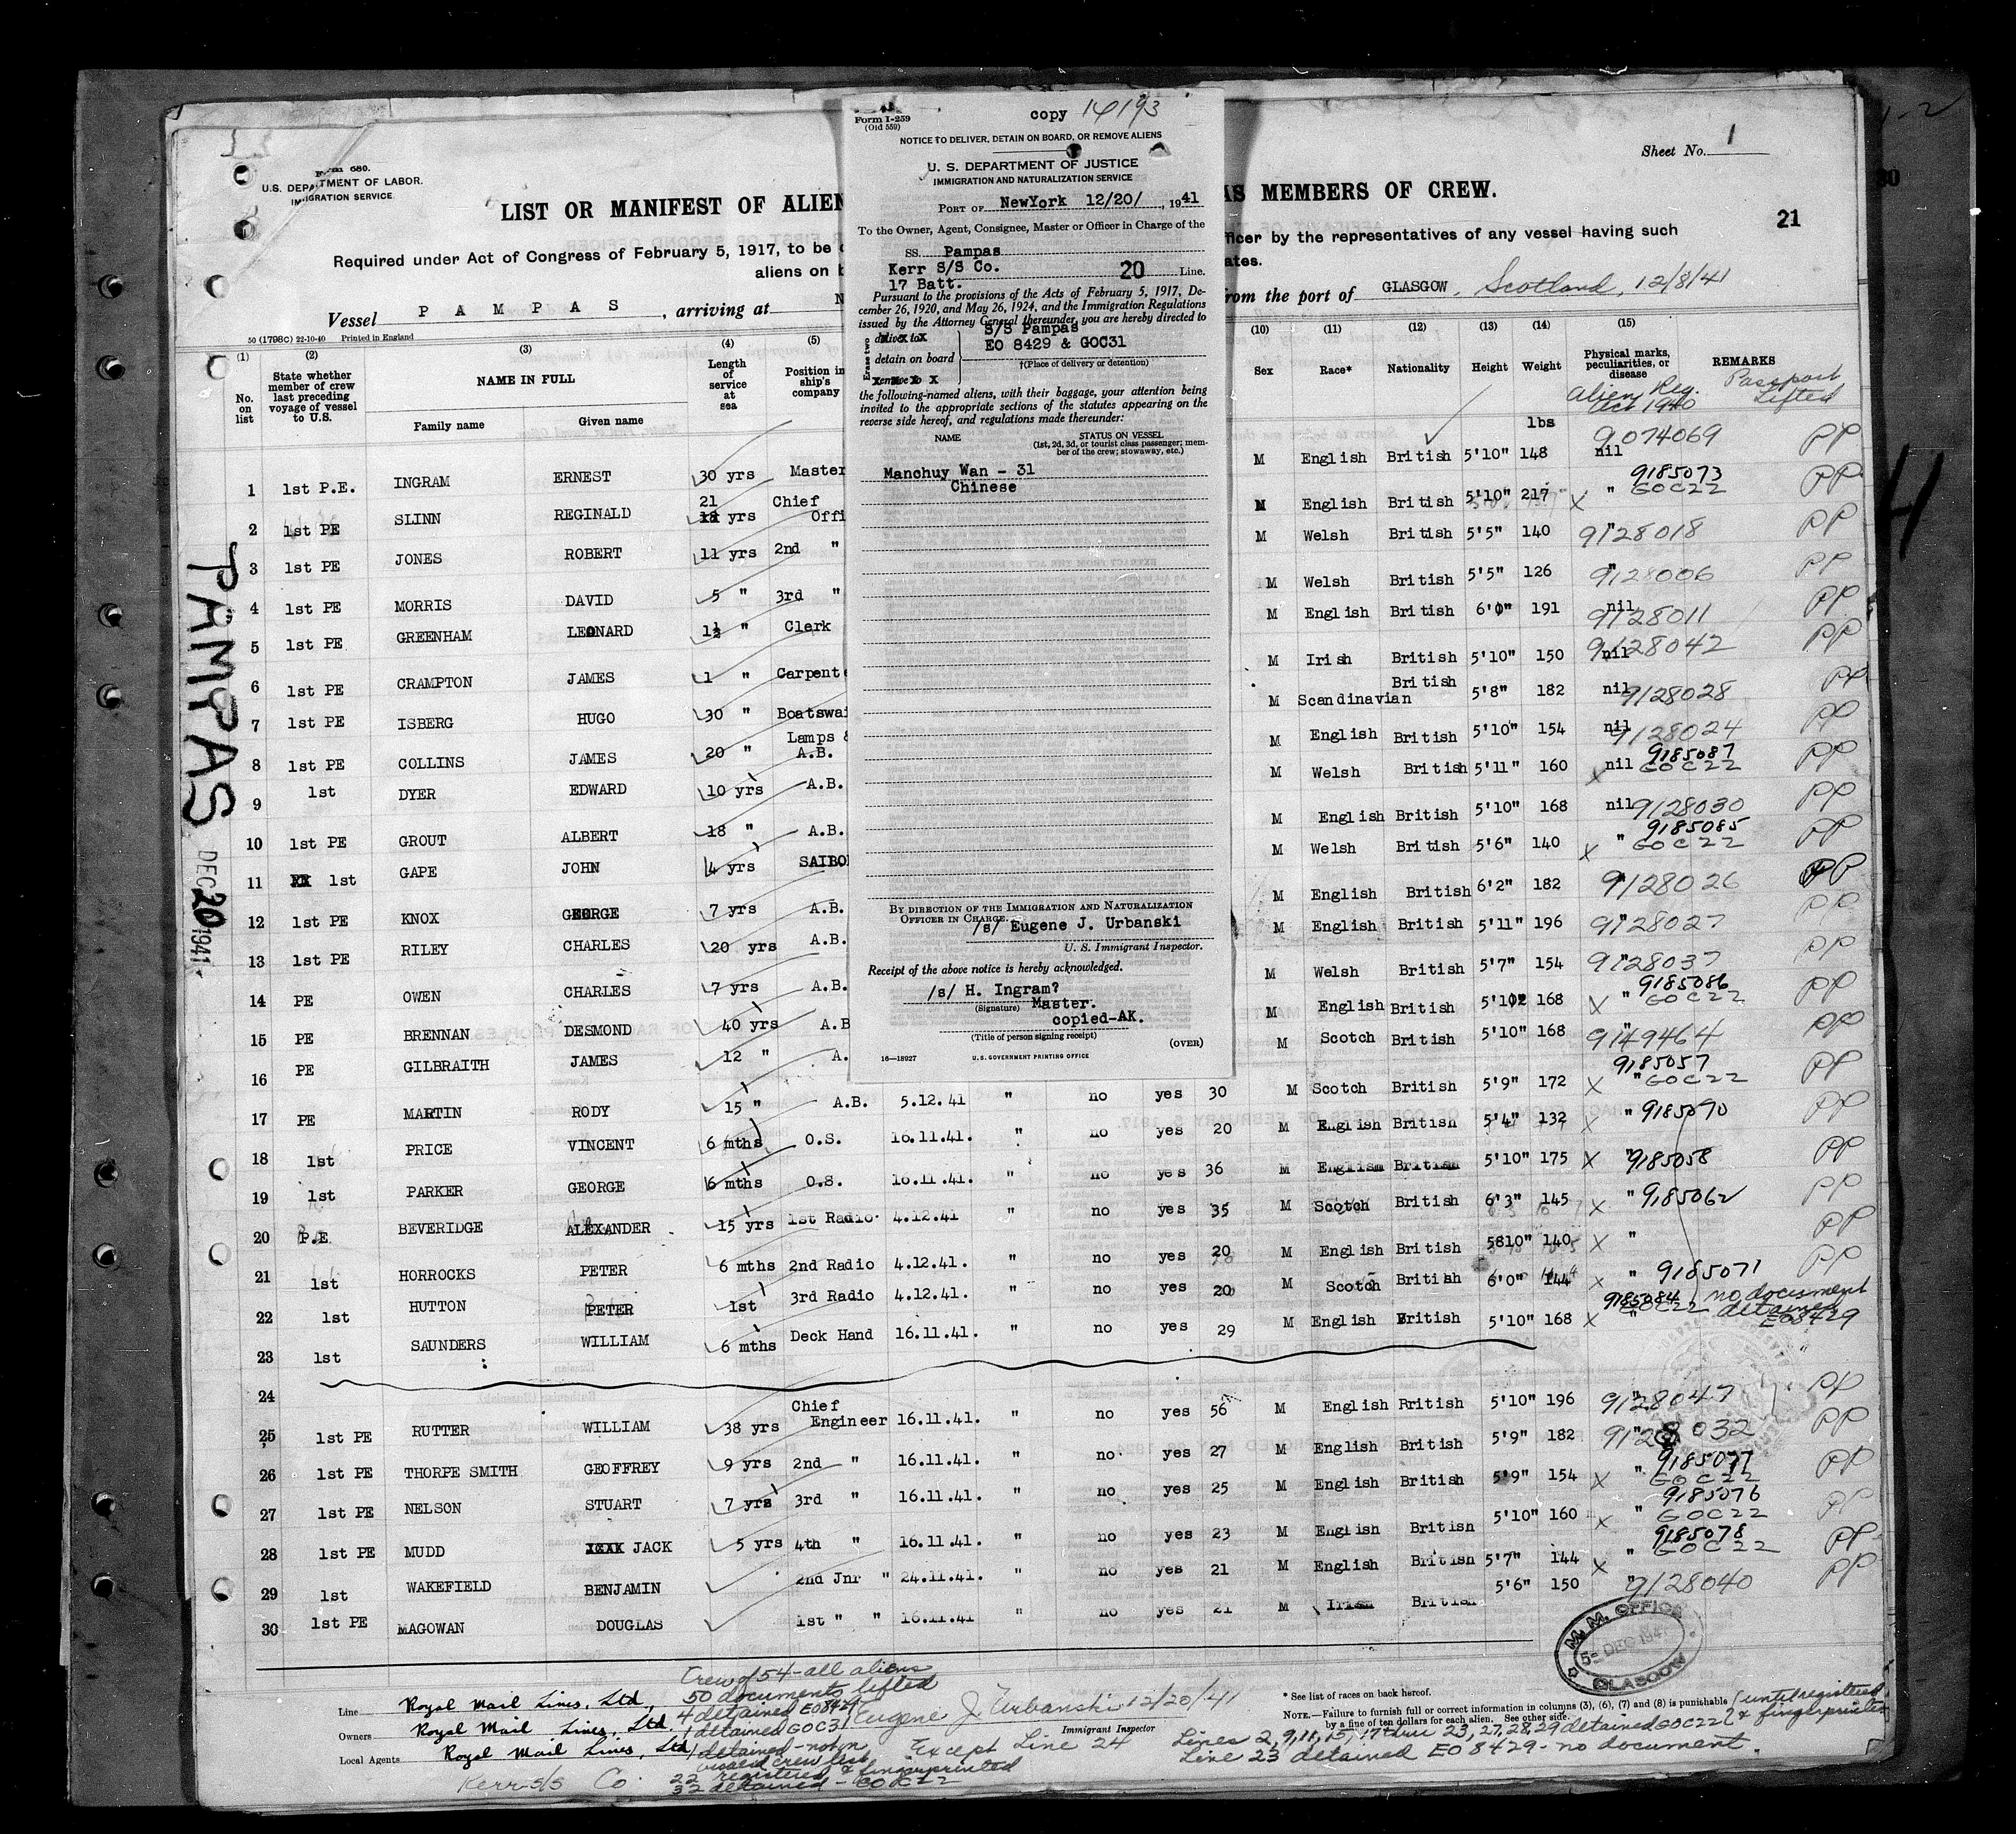 1-2
30
4
Form 680.
U.S. DEPARTMENT OF LABOR.
IMMIGRATION SERVICE
Sheet No. 1
LIST OR MANIFEST OF ALIEN
AS MEMBERS OF CREW.
21
Required under Act of Congress of February 5, 1917, to be
fficer by the representatives of any vessel having such
aliens on b
ates.
Vessel P A M P A S , arriving at N
from the port of GLASGOW, Scotland, 12/8/41
50 (1798C) 22-10-40 Printed in England
Form I-259
(Old 559)
copy 14193
NOTICE TO DELIVER, DETAIN ON BOARD, OR REMOVE ALIENS
U. S. DEPARTMENT OF JUSTICE
IMMIGRATION AND NATURALIZATION SERVICE
PORT OF NewYork 12/20/, 1941
To the Owner, Agent, Consignee, Master or Officer in Charge of the
SS. Pampas
Kerr S/S Co. 20 Line.
17 Batt.
Pursuant to the provisions of the Acts of February 5, 1917, De-
cember 26, 1920, and May 26, 1924, and the Immigration Regulations
issued by the Attorney General thereunder, you are hereby directed to
Erase two
deliver to
detain on board
remove to
S/S Pampas
EO 8429 & GOC31
†(Place of delivery or detention)
the following-named aliens, with their baggage, your attention being
invited to the appropriate sections of the statutes appearing on the
reverse side hereof, and regulations made thereunder:
NAME STATUS ON VESSEL
(1st, 2d, 3d, or tourist class passenger; mem-
ber of the crew; stowaway, etc.)
Manchuy Wan - 31
Chinese
BY DIRECTION OF THE IMMIGRATION AND NATURALIZATION
OFFICER IN CHARGE.
/s/ Eugene J. Urbanski
U. S. Immigrant Inspector.
Receipt of the above notice is hereby acknowledged.
/s/ H. Ingram?
(Signature) Master.
copied-AK.
(Title of person signing receipt)
(OVER)
16—18927 U.S. GOVERNMENT PRINTING OFFICE
(1) (2) (3) (4) (5) (10) (11) (12) (13) (14) (15)
No. on list
State whether member of crew last preceding voyage of vessel to U.S.
NAME IN FULL
Family name Given name
Length of service at sea
Position in ship's company
Sex Race* Nationality Height Weight
Physical marks, peculiarities, or disease
REMARKS
Alien Reg. Oct 1940
Passport Lifted
lbs
1 1st P.E. INGRAM ERNEST 30 yrs Master M English British 5'10" 148 nil 9074069 PP
2 1st PE SLINN REGINALD 21 yrs Chief Offi M English British 5'10" 217 X " 9185073 GOC22 PP
3 1st PE JONES ROBERT 11 yrs 2nd " M Welsh British 5'5" 140 " 9128018 PP
4 1st PE MORRIS DAVID 5 " 3rd " M Welsh British 5'5" 126 " 9128006 PP
5 1st PE GREENHAM LEONARD 1½ " Clerk M English British 6'0" 191 nil 9128011 PP
6 1st PE CRAMPTON JAMES 1 " Carpente M Irish British 5'10" 150 nil 9128042 PP
7 1st PE ISBERG HUGO 30 " Boatswai M Scandinavian British 5'8" 182 nil 9128028 PP
8 1st PE COLLINS JAMES 20 " Lamps & A.B. M English British 5'10" 154 nil 9128024 PP
9 1st DYER EDWARD 10 yrs A.B. M Welsh British 5'11" 160 X nil 9185087 GOC22 PP
10 1st PE GROUT ALBERT 18 " A.B. M English British 5'10" 168 nil 9128030 PP
11 1st GAPE JOHN 4 yrs SAILO M Welsh British 5'6" 140 X " 9185085 GOC22 PP
12 1st PE KNOX GEORGE 7 yrs A.B. M English British 6'2" 182 9128026 PP
13 1st PE RILEY CHARLES 20 yrs A.B. M English British 5'11" 196 " 9128027 PP
14 PE OWEN CHARLES 7 yrs A.B. M Welsh British 5'7" 154 " 9128037 PP
15 PE BRENNAN DESMOND 40 yrs A.B M English British 5'10½ 168 X " 9185086 GOC22 PP
16 PE GILBRAITH JAMES 12 " A. M Scotch British 5'10" 168 " 9149464 PP
17 PE MARTIN RODY 15 " A.B. 5.12.41 " no yes 30 M Scotch British 5'9" 172 X " 9185057 GOC22 PP
18 1st PRICE VINCENT 6 mths O.S. 16.11.41. " no yes 20 M English British 5'4" 132 X " 9185090 PP
19 1st PARKER GEORGE 6 mths O.S. 16.11.41. " no yes 36 M English British 5'10" 175 X " 9185058 PP
20 P.E BEVERIDGE ALEXANDER 15 yrs 1st Radio 4.12.41 " no yes 35 M Scotch British 6'3" 145 X " 9185062 PP
21 1st HORROCKS PETER 6 mths 2nd Radio 4.12.41. " no yes 20 M English British 5810" 140 X " PP
22 1st HUTTON PETER 1st 3rd Radio 4.12.41. " no yes 20 M Scotch British 6'0" 144 X " 9185071 PP
23 1st SAUNDERS WILLIAM 6 mths Deck Hand 16.11.41. " no yes 29 M English British 5'10" 168 X " 9185084 GOC22 no document detained EO8429
24
25 1st PE RUTTER WILLIAM 38 yrs Chief Engineer 16.11.41. " no yes 56 M English British 5'10" 196 " 9128047 PP
26 1st PE THORPE SMITH GEOFFREY 9 yrs 2nd " 16.11.41. " no yes 27 M English British 5'9" 182 " 9128032 PP
27 1st PE NELSON STUART 7 yrs 3rd " 16.11.41. " no yes 25 M English British 5'9" 154 X " 9185077 GOC22 PP
28 1st PE MUDD JACK 5 yrs 4th " 16.11.41. " no yes 23 M English British 5'10" 160 X " 9185076 GOC22 PP
29 1st WAKEFIELD BENJAMIN 2nd Jnr " 24.11.41. " no yes 21 M English British 5'7" 144 X " 9185078 GOC22 PP
30 1st PE MAGOWAN DOUGLAS 1st " " 16.11.41 " no yes 21 M Irish British 5'6" 150 " 9128040 PP
PAMPAS
DEC 20 1941
M. M. OFFICE
5- DEC 1941
GLASGOW
Line Royal Mail Lines, Ltd.,
Owners Royal Mail Lines, Ltd.
Local Agents Royal Mail Lines, Ltd
Kerr S/S Co.
Crew of 54 - all aliens
50 documents lifted
4 detained EO8429
1 detained GOC31
1 detained - not on
visaed crew list
22 registered & fingerprinted
32 detained - GOC22
Eugene J Urbanski 12/20/41
Immigrant Inspector
Except Line 24
* See list of races on back hereof.
NOTE.—Failure to furnish full or correct information in columns (3), (6), (7) and (8) is punishable
by a fine of ten dollars for each alien. See other side.
Lines 2, 9, 11, 15, 17 thru 23, 27, 28, 29 detained GOC22 (until registered & fingerprinted
Line 23 detained EO8429 - no document.